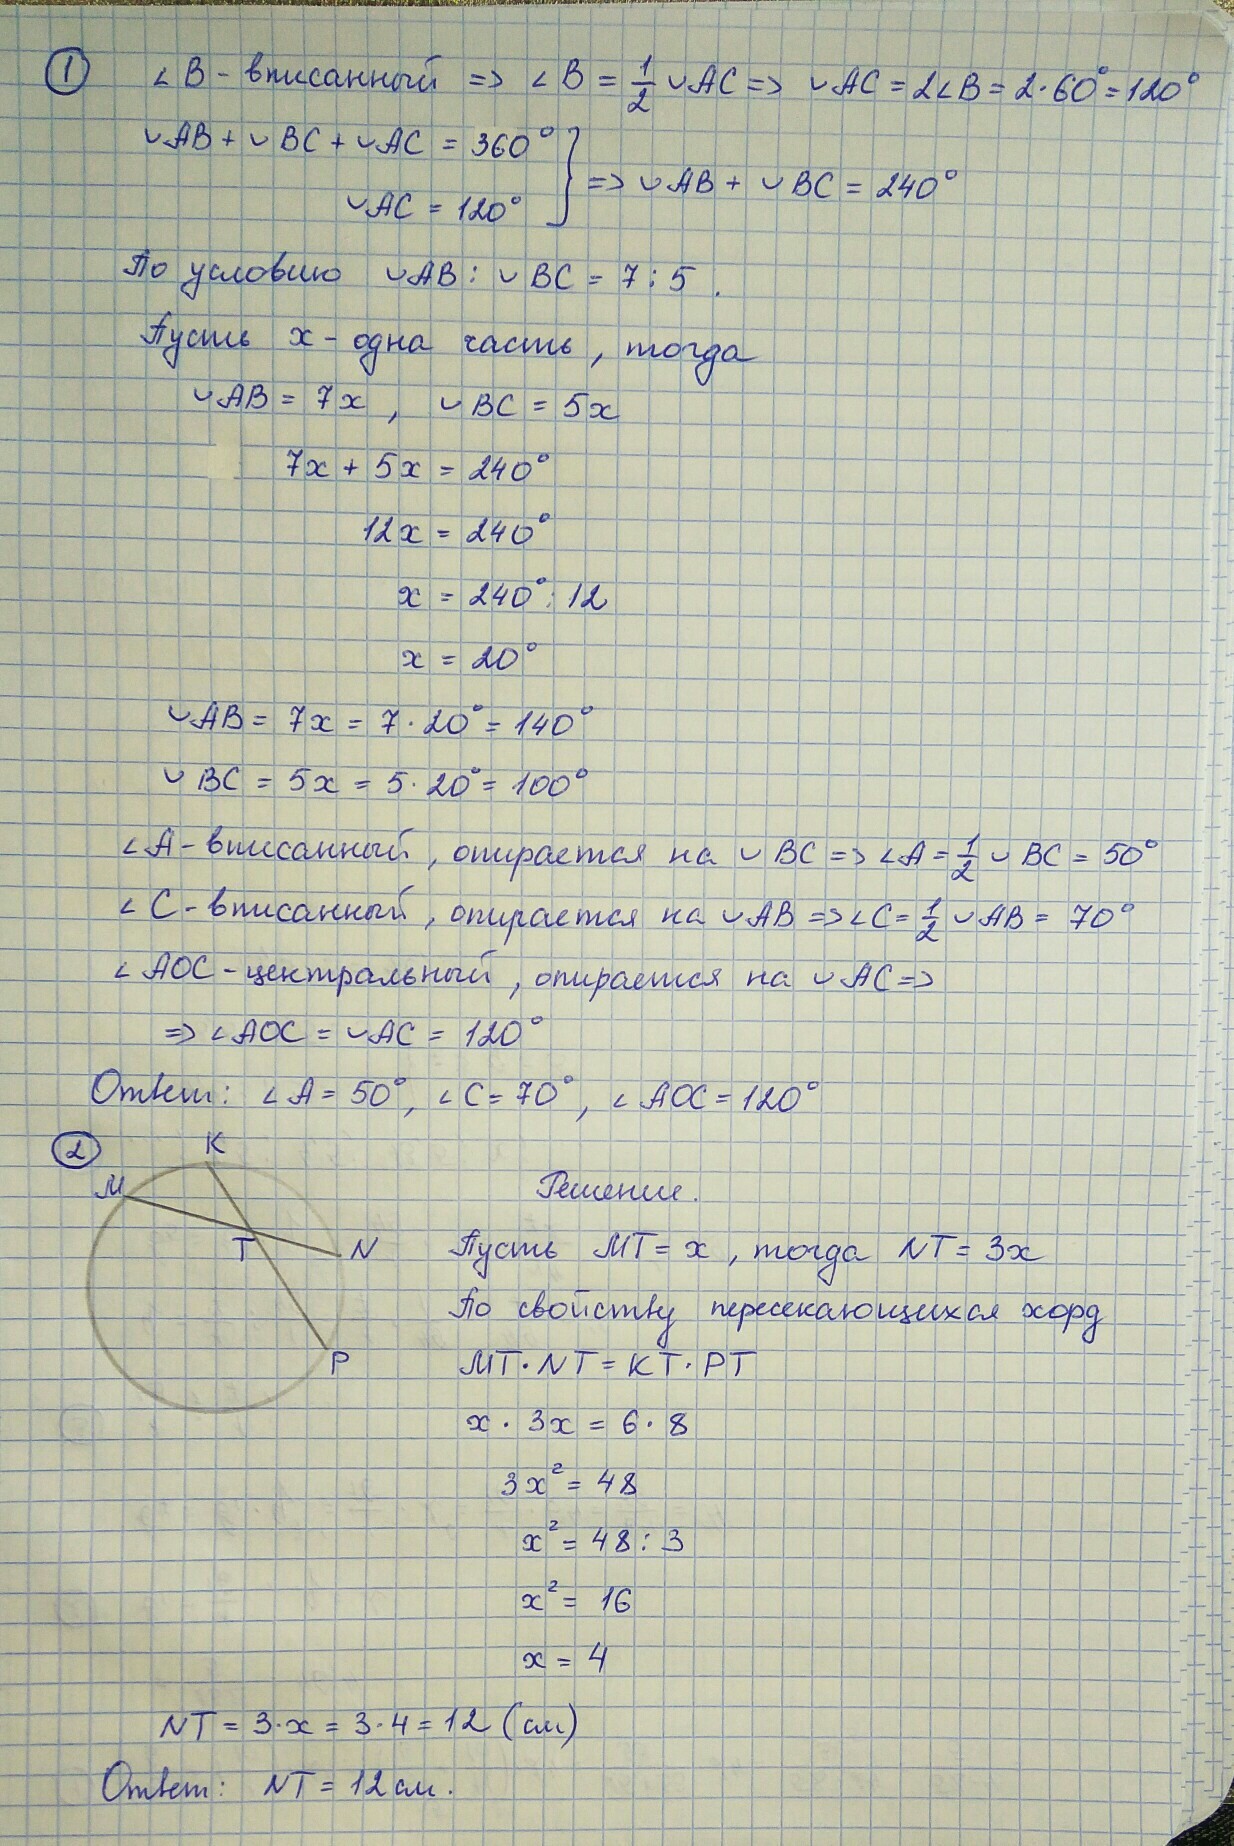 ① ∠B - вписанный => ∠B = 1/2 ◡AC => ◡AC = 2∠B = 2·60° = 120°
◡AB + ◡BC + ◡AC = 360°
◡AC = 120° } => ◡AB + ◡BC = 240°
По условию ◡AB : ◡BC = 7 : 5.
Пусть x - одна часть, тогда
◡AB = 7x, ◡BC = 5x
7x + 5x = 240°
12x = 240°
x = 240° : 12
x = 20°
◡AB = 7x = 7·20° = 140°
◡BC = 5x = 5·20° = 100°
∠A - вписанный, опирается на ◡BC => ∠A = 1/2 ◡BC = 50°
∠C - вписанный, опирается на ◡AB => ∠C = 1/2 ◡AB = 70°
∠AOC - центральный, опирается на ◡AC =>
=> ∠AOC = ◡AC = 120°
Ответ: ∠A = 50°, ∠C = 70°, ∠AOC = 120°
②
K
M
T
N
P
Решение.
Пусть MT = x, тогда NT = 3x
По свойству пересекающихся хорд
MT·NT = KT·PT
x · 3x = 6·8
3x² = 48
x² = 48 : 3
x² = 16
x = 4
NT = 3·x = 3·4 = 12 (см)
Ответ: NT = 12 см.